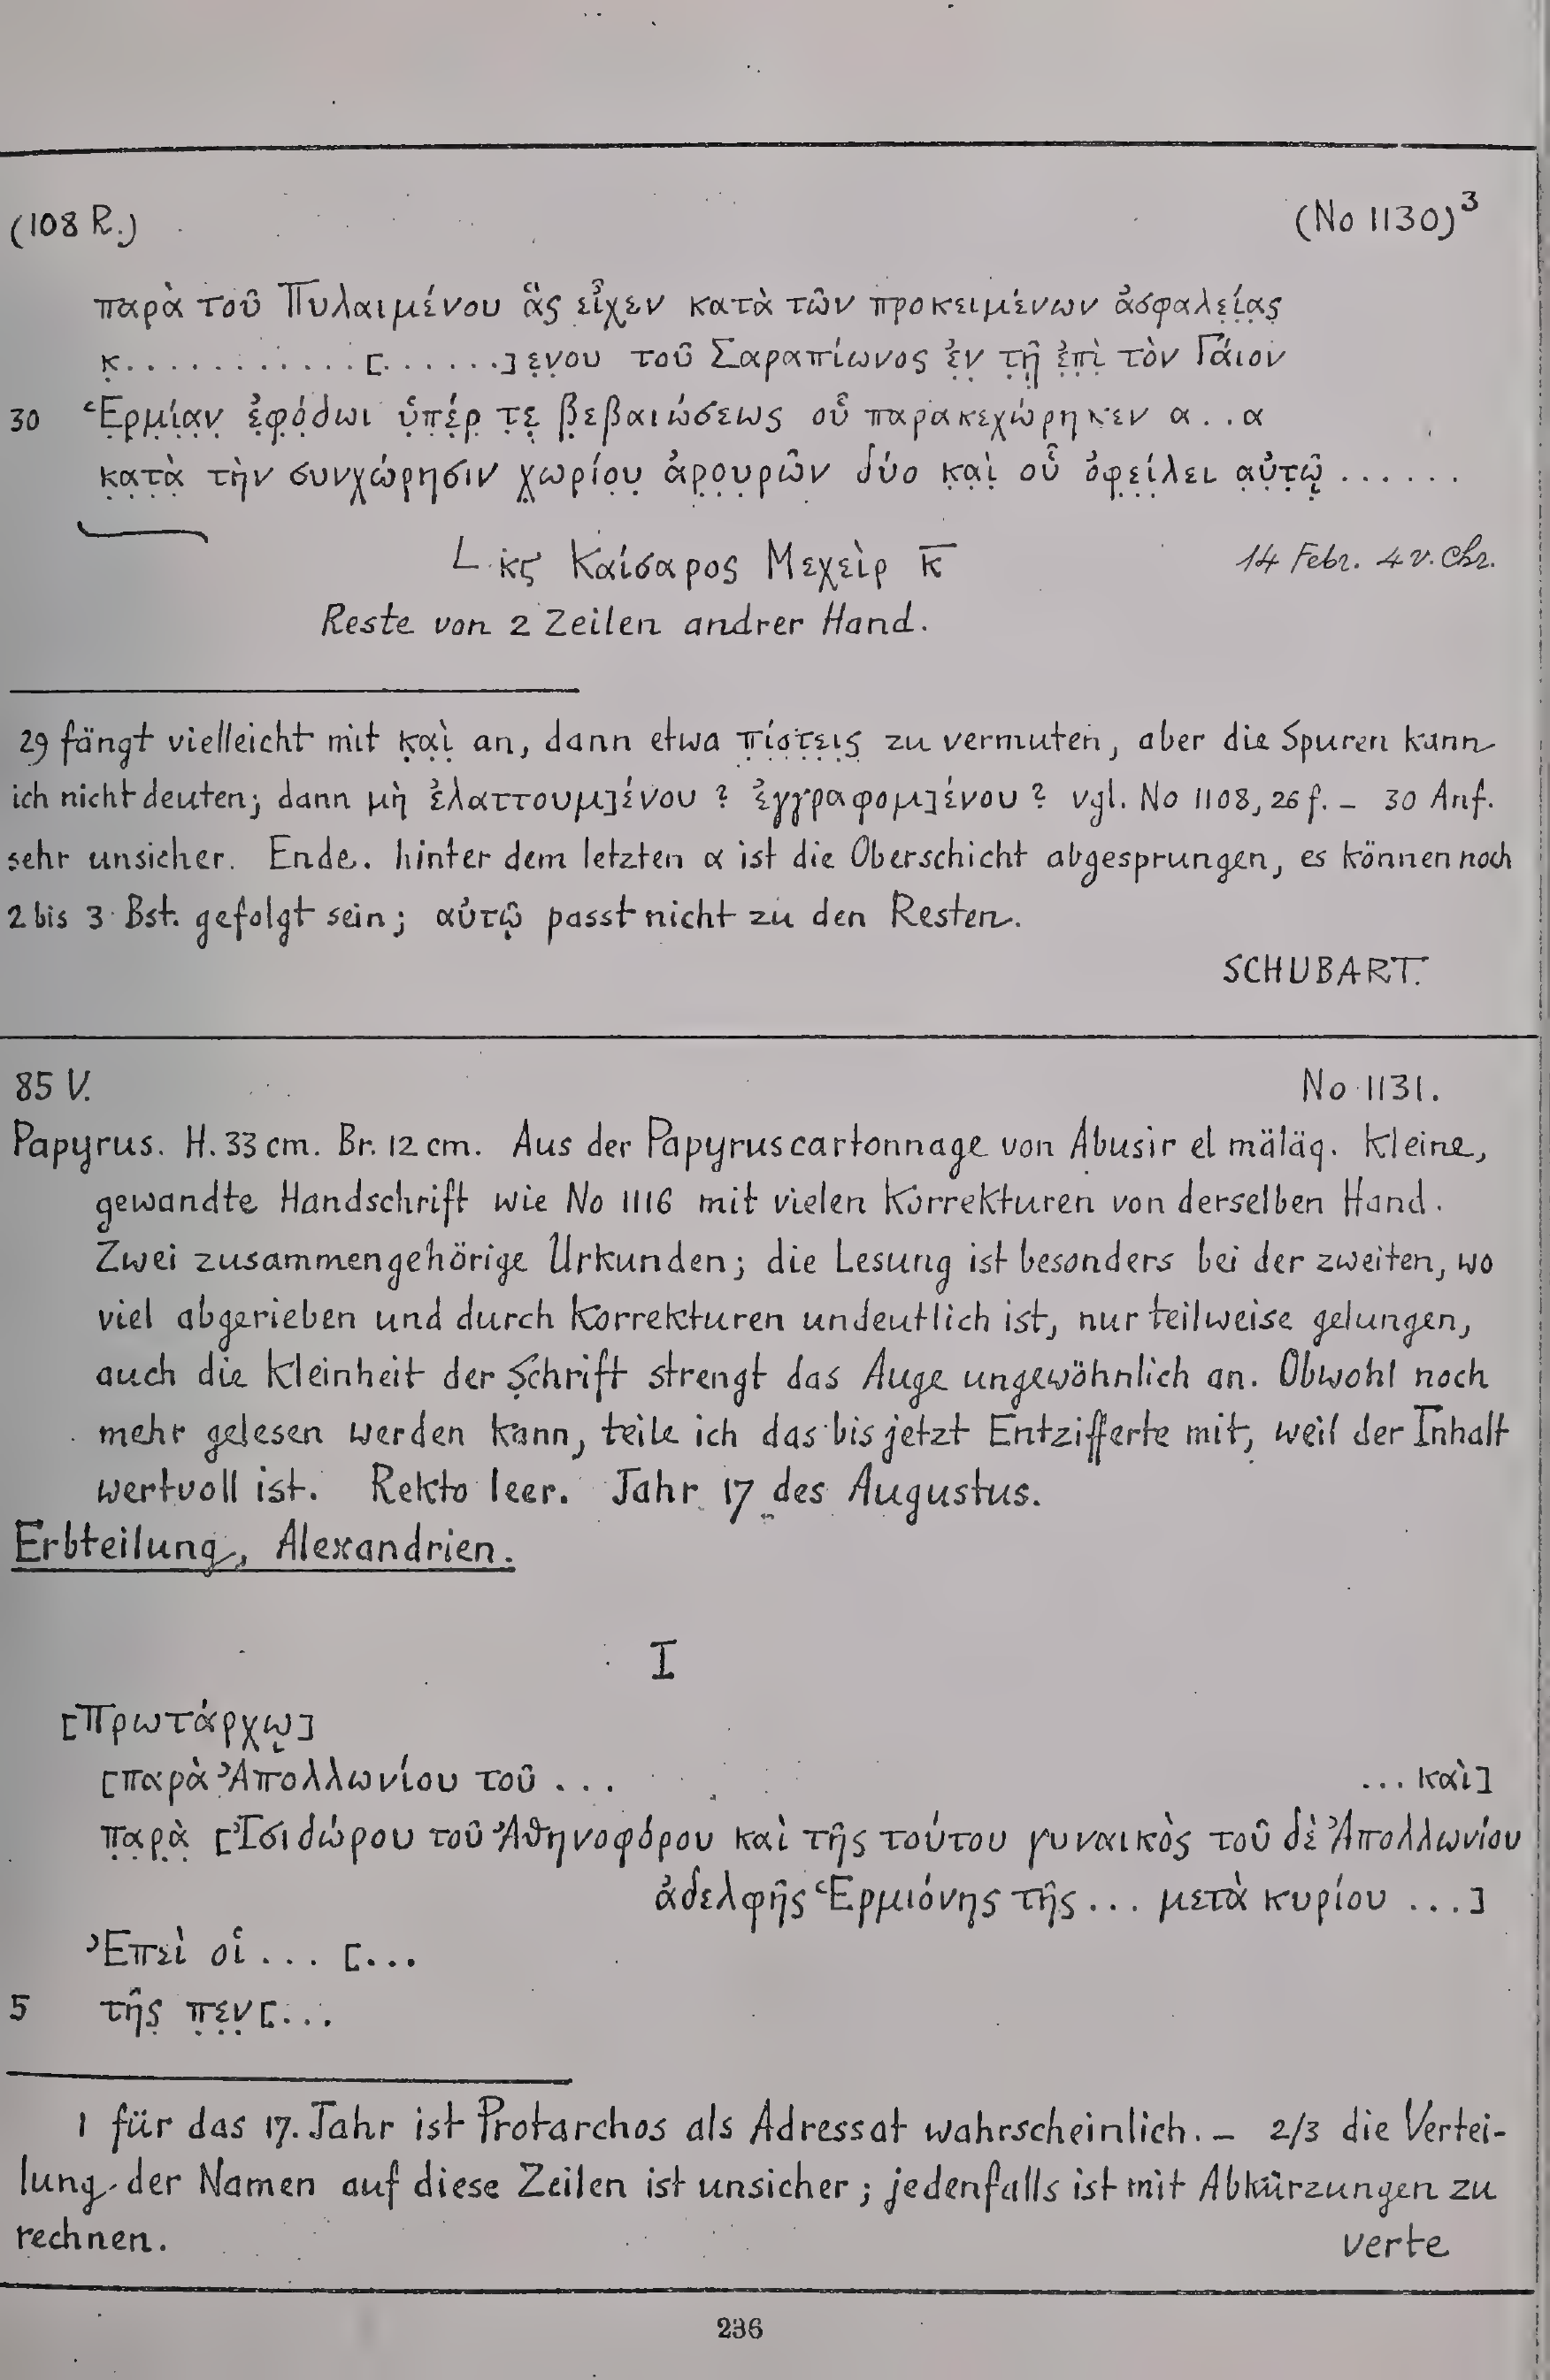 (108 R.) (No 1130)³
παρὰ τοῦ Πυλαιμένου ἃς εἶχεν κατὰ τῶν προκειμένων ἀσφαλε̣ί̣α̣ς̣
κ̣............[......]ε̣ν̣ου τοῦ Σαραπίωνος ἐ̣ν̣ τ̣ῇ̣ ἐ̣π̣ὶ̣ τὸν Γάιον
30 Ἑ̣ρ̣μ̣ί̣α̣ν̣ ἐ̣φ̣ό̣δ̣ωι ὑ̣π̣έ̣ρ̣ τ̣ε̣ β̣εβαιώσεως οὗ παρακεχώρηκεν α..α
κ̣α̣τ̣ὰ̣ τὴν συνχώρησιν χ̣ωρίο̣υ̣ ἀ̣ρ̣ο̣υ̣ρ̣ῶν δύο κ̣α̣ὶ̣ οὗ ὀφ̣ε̣ί̣λει α̣ὐ̣τ̣ῷ̣ ......
L κς Καίσαρος Μεχεὶρ κ̅ 14 Febr. 4 v. Chr.
Reste von 2 Zeilen andrer Hand.
29 fängt vielleicht mit κ̣α̣ὶ̣ an, dann etwa π̣ί̣σ̣τ̣ε̣ι̣ς̣ zu vermuten, aber die Spuren kann
ich nicht deuten; dann μὴ ἐλαττουμ]ένου ? ἐγγραφομ]ένου ? vgl. No 1108, 26 f. – 30 Anf.
sehr unsicher. Ende. hinter dem letzten α ist die Oberschicht abgesprungen, es können noch
2 bis 3 Bst. gefolgt sein; αὐτῷ passt nicht zu den Resten.
SCHUBART.
85 V. No 1131.
Papyrus. H. 33 cm. Br. 12 cm. Aus der Papyruscartonnage von Abusir el mäläq. Kleine,
gewandte Handschrift wie No 1116 mit vielen Korrekturen von derselben Hand.
Zwei zusammengehörige Urkunden; die Lesung ist besonders bei der zweiten, wo
viel abgerieben und durch Korrekturen undeutlich ist, nur teilweise gelungen,
auch die Kleinheit der Schrift strengt das Auge ungewöhnlich an. Obwohl noch
mehr gelesen werden kann, teile ich das bis jetzt Entzifferte mit, weil der Inhalt
wertvoll ist. Rekto leer. Jahr 17 des Augustus.
Erbteilung, Alexandrien.
I
[Πρωτάρχῳ]
[παρὰ Ἀπολλωνίου τοῦ ... ... καὶ]
π̣α̣ρ̣ὰ̣ [Ἰσιδώρου τοῦ Ἀθηνοφόρου καὶ τῆς τούτου γυναικὸς τοῦ δὲ Ἀπολλωνίου
ἀδελφῆς Ἑρμιόνης τῆς ... μετὰ κυρίου ...]
Ἐπεὶ οἱ ... [...
5 τῆς̣ π̣ε̣ν̣[...
1 für das 17. Jahr ist Protarchos als Adressat wahrscheinlich. – 2/3 die Vertei-
lung der Namen auf diese Zeilen ist unsicher; jedenfalls ist mit Abkürzungen zu
rechnen. verte
236